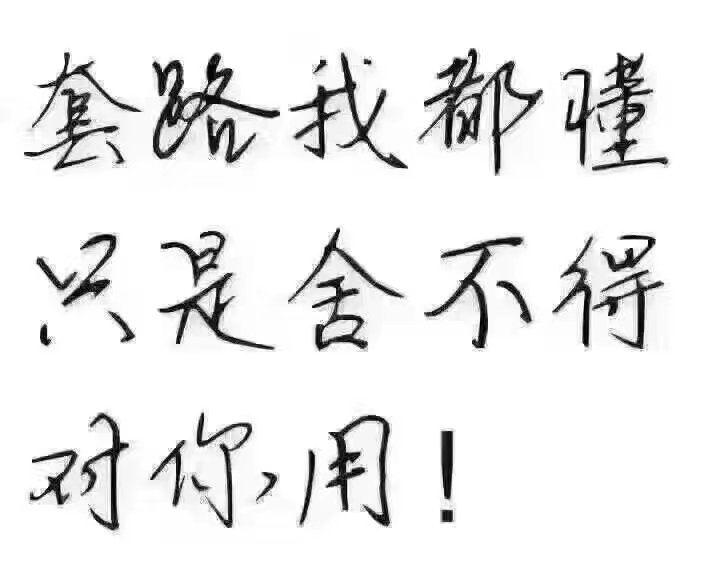 套路我都懂
只是舍不得
对你用！